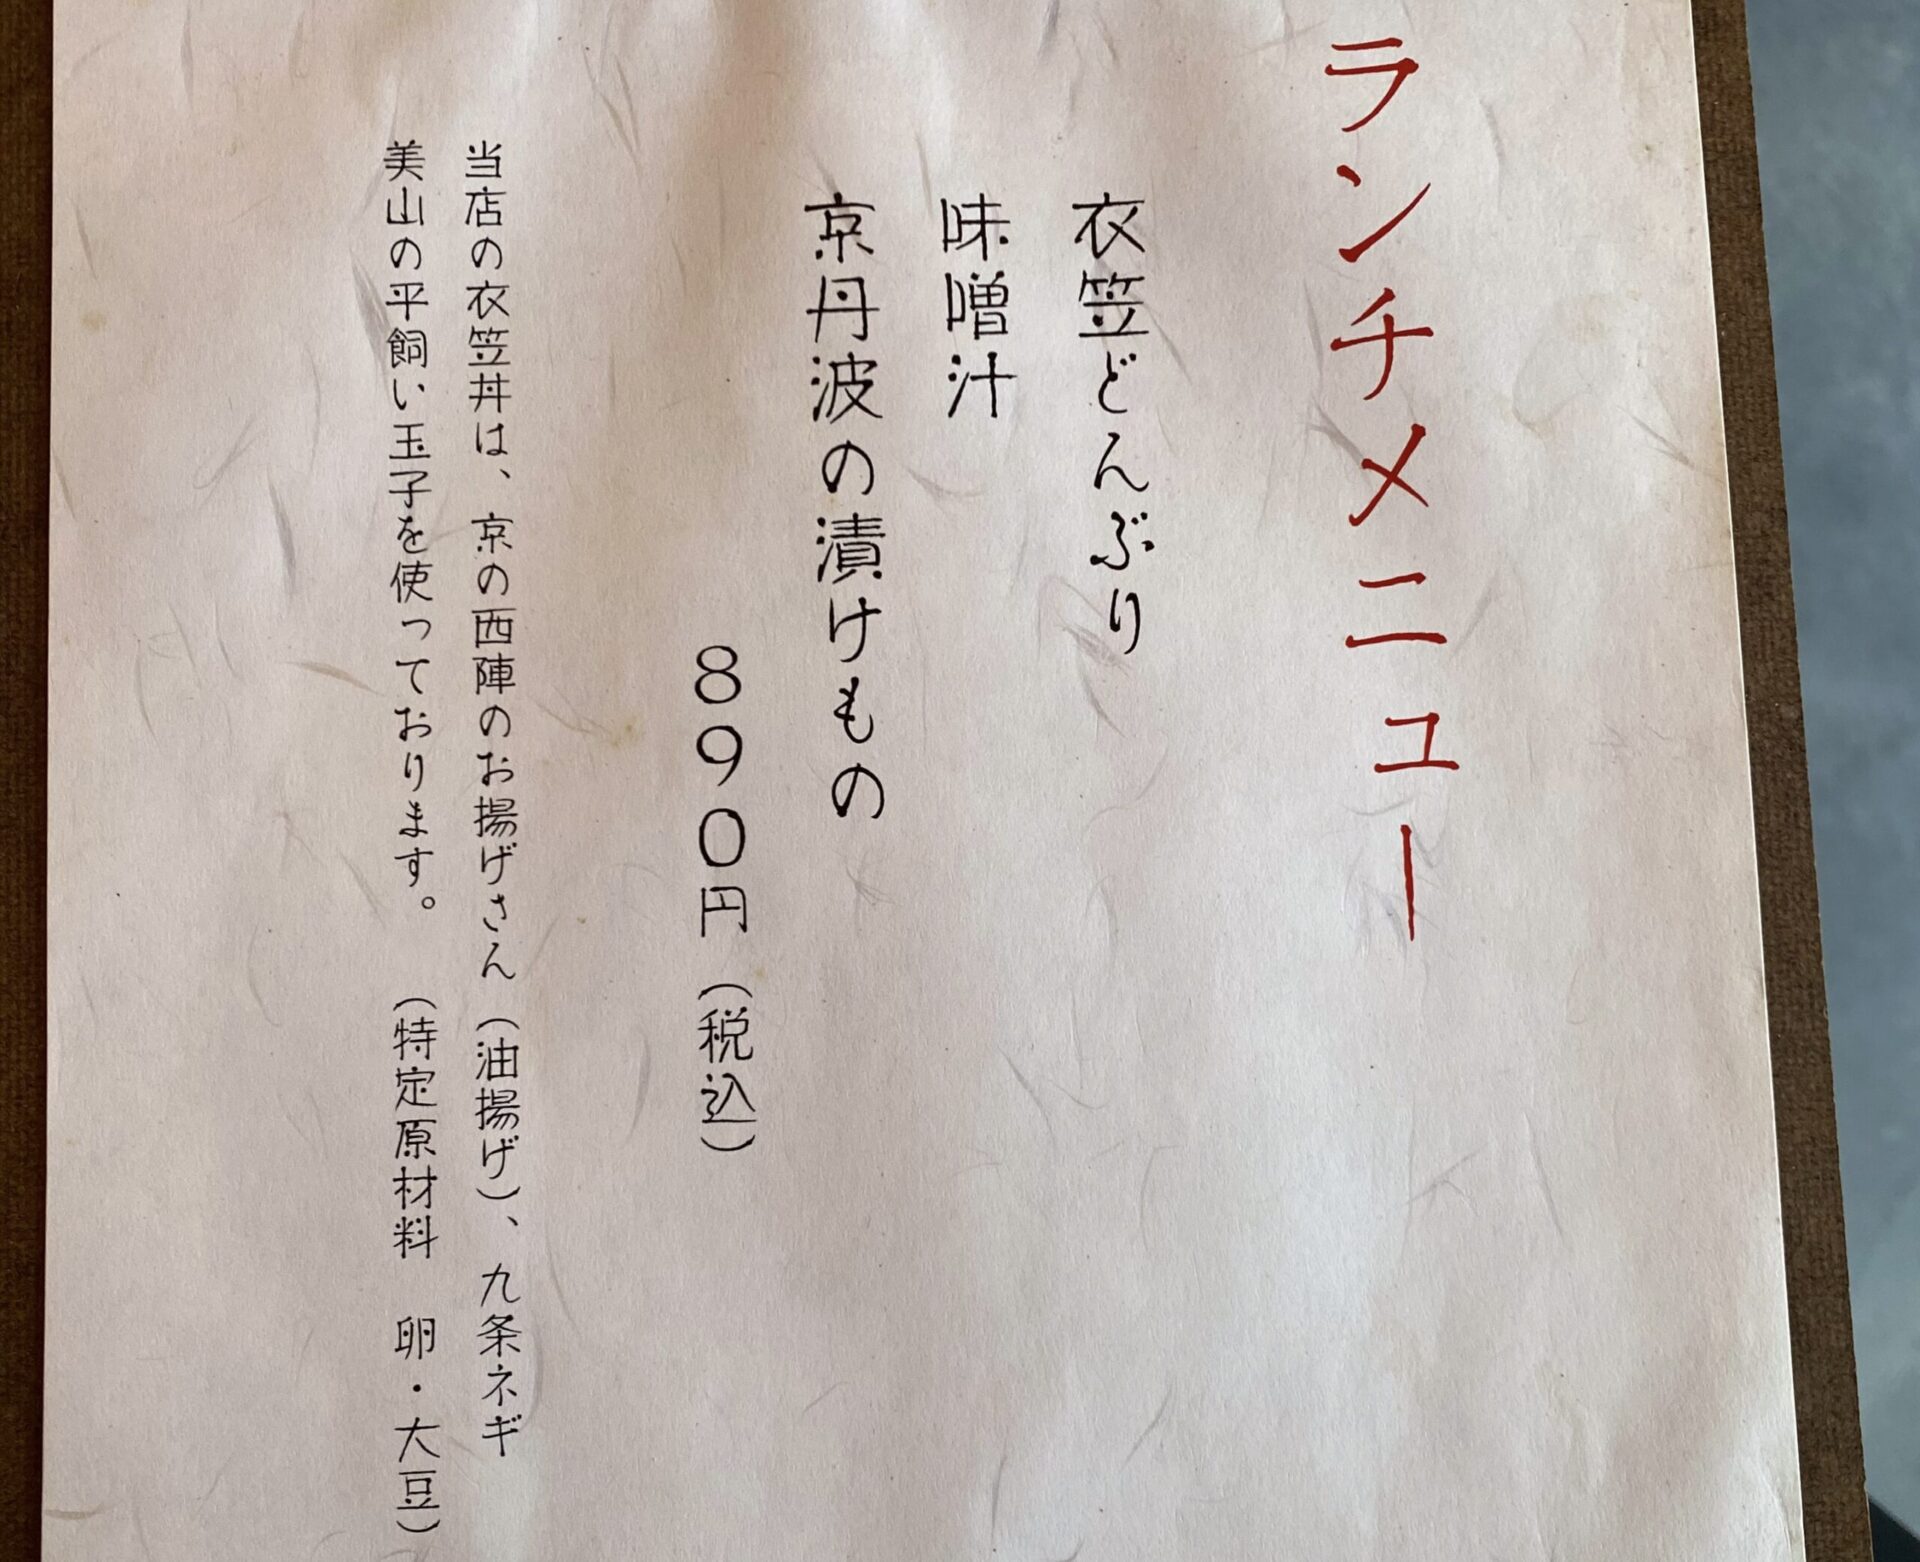 ランチメニュー
衣笠どんぶり
味噌汁
京丹波の漬けもの
８９０円（税込）
当店の衣笠丼は、京の西陣のお揚げさん（油揚げ）、九条ネギ
美山の平飼い玉子を使っております。（特定原材料　卵・大豆）